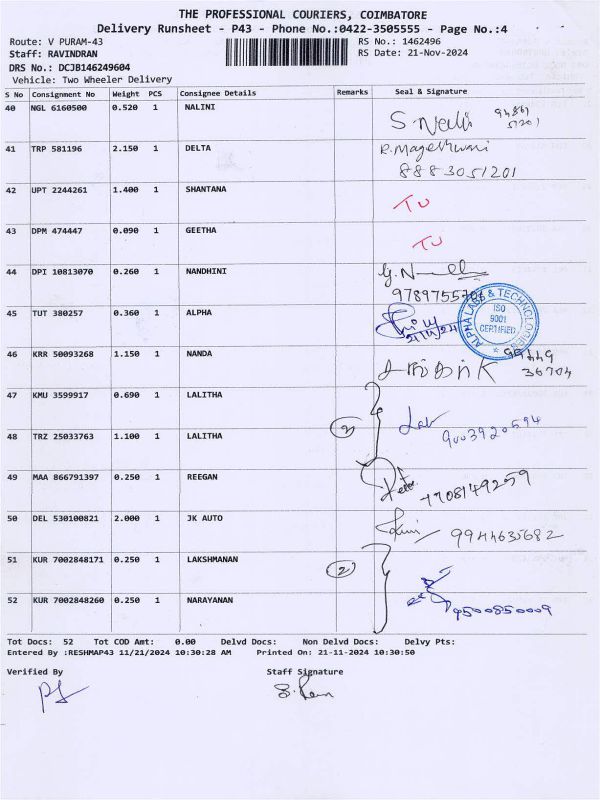 THE PROFESSIONAL COURIERS, COIMBATORE
Delivery Runsheet - P43 - Phone No.:0422-3505555 - Page No.:4
Route: V PURAM-43 RS No.: 1462496
Staff: RAVINDRAN RS Date: 21-Nov-2024
DRS No.: DCJB146249604
Vehicle: Two Wheeler Delivery
S No Consignment No Weight PCS Consignee Details Remarks Seal & Signature
40 NGL 6160500 0.520 1 NALINI
41 TRP 581196 2.150 1 DELTA
8883051201
42 UPT 2244261 1.400 1 SHANTANA TU
43 DPM 474447 0.090 1 GEETHA TU
44 DPI 10813070 0.260 1 NANDHINI
45 TUT 380257 0.360 1 ALPHA
ALPHA LABS & TECHNOLOGIES
ISO
9001
CERTIFIED
46 KRR 50093268 1.150 1 NANDA
47 KMU 3599917 0.690 1 LALITHA
48 TRZ 25033763 1.100 1 LALITHA
9003920594
49 MAA 866791397 0.250 1 REEGAN
7708149259
50 DEL 530100821 2.000 1 JK AUTO 9944635682
51 KUR 7002848171 0.250 1 LAKSHMANAN 2
52 KUR 7002848260 0.250 1 NARAYANAN 9500850009
Tot Docs: 52 Tot COD Amt: 0.00 Delvd Docs: Non Delvd Docs: Delvy Pts:
Entered By :RESHMAP43 11/21/2024 10:30:28 AM Printed On: 21-11-2024 10:30:50
Verified By Staff Signature